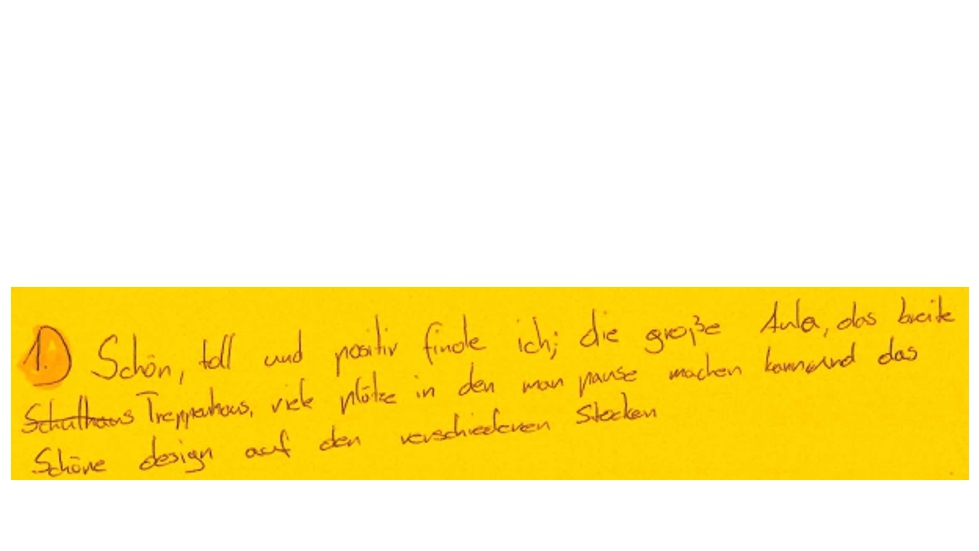 1.) Schön, toll und positiv finde ich; die große Aula, das breite
Schulhaus Treppenhaus, viele plätze in den man pause machen kann und das
Schöne design auf den verschiedenen Stocken